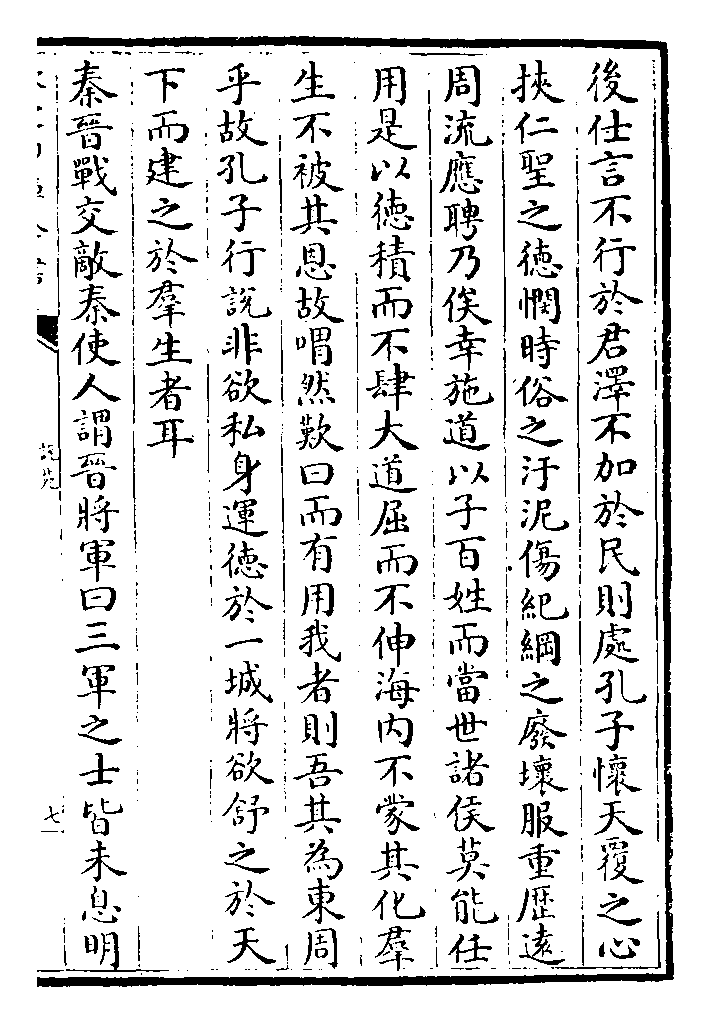 後仕言不行於君澤不加於民則處孔子懷天覆之心
挾仁聖之徳憫時俗之汙泥傷紀綱之廢壞服重歴逺
周流應聘乃俟幸施道以子百姓而當世諸侯莫能任
用是以徳積而不肆大道屈而不伸海内不蒙其化羣
生不被其恩故喟然歎曰而有用我者則吾其為東周
乎故孔子行說非欲私身運徳於一城將欲舒之於天
下而建之於羣生者耳
秦晉戰交敵秦使人謂晉將軍曰三軍之士皆未息明
說苑
七